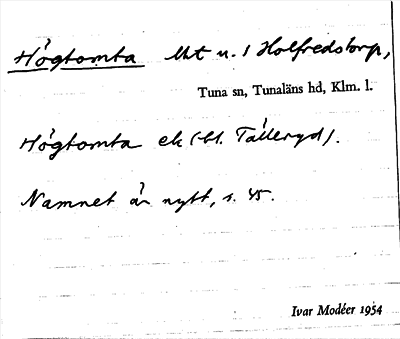 Högtomta lht u. 1 Holfredstorp,
Tuna sn, Tunaläns hd, Klm. l.
Högtomta ek (bl. Tälleryd).
Namnet är nytt, s. 45.
Ivar Modéer 1954